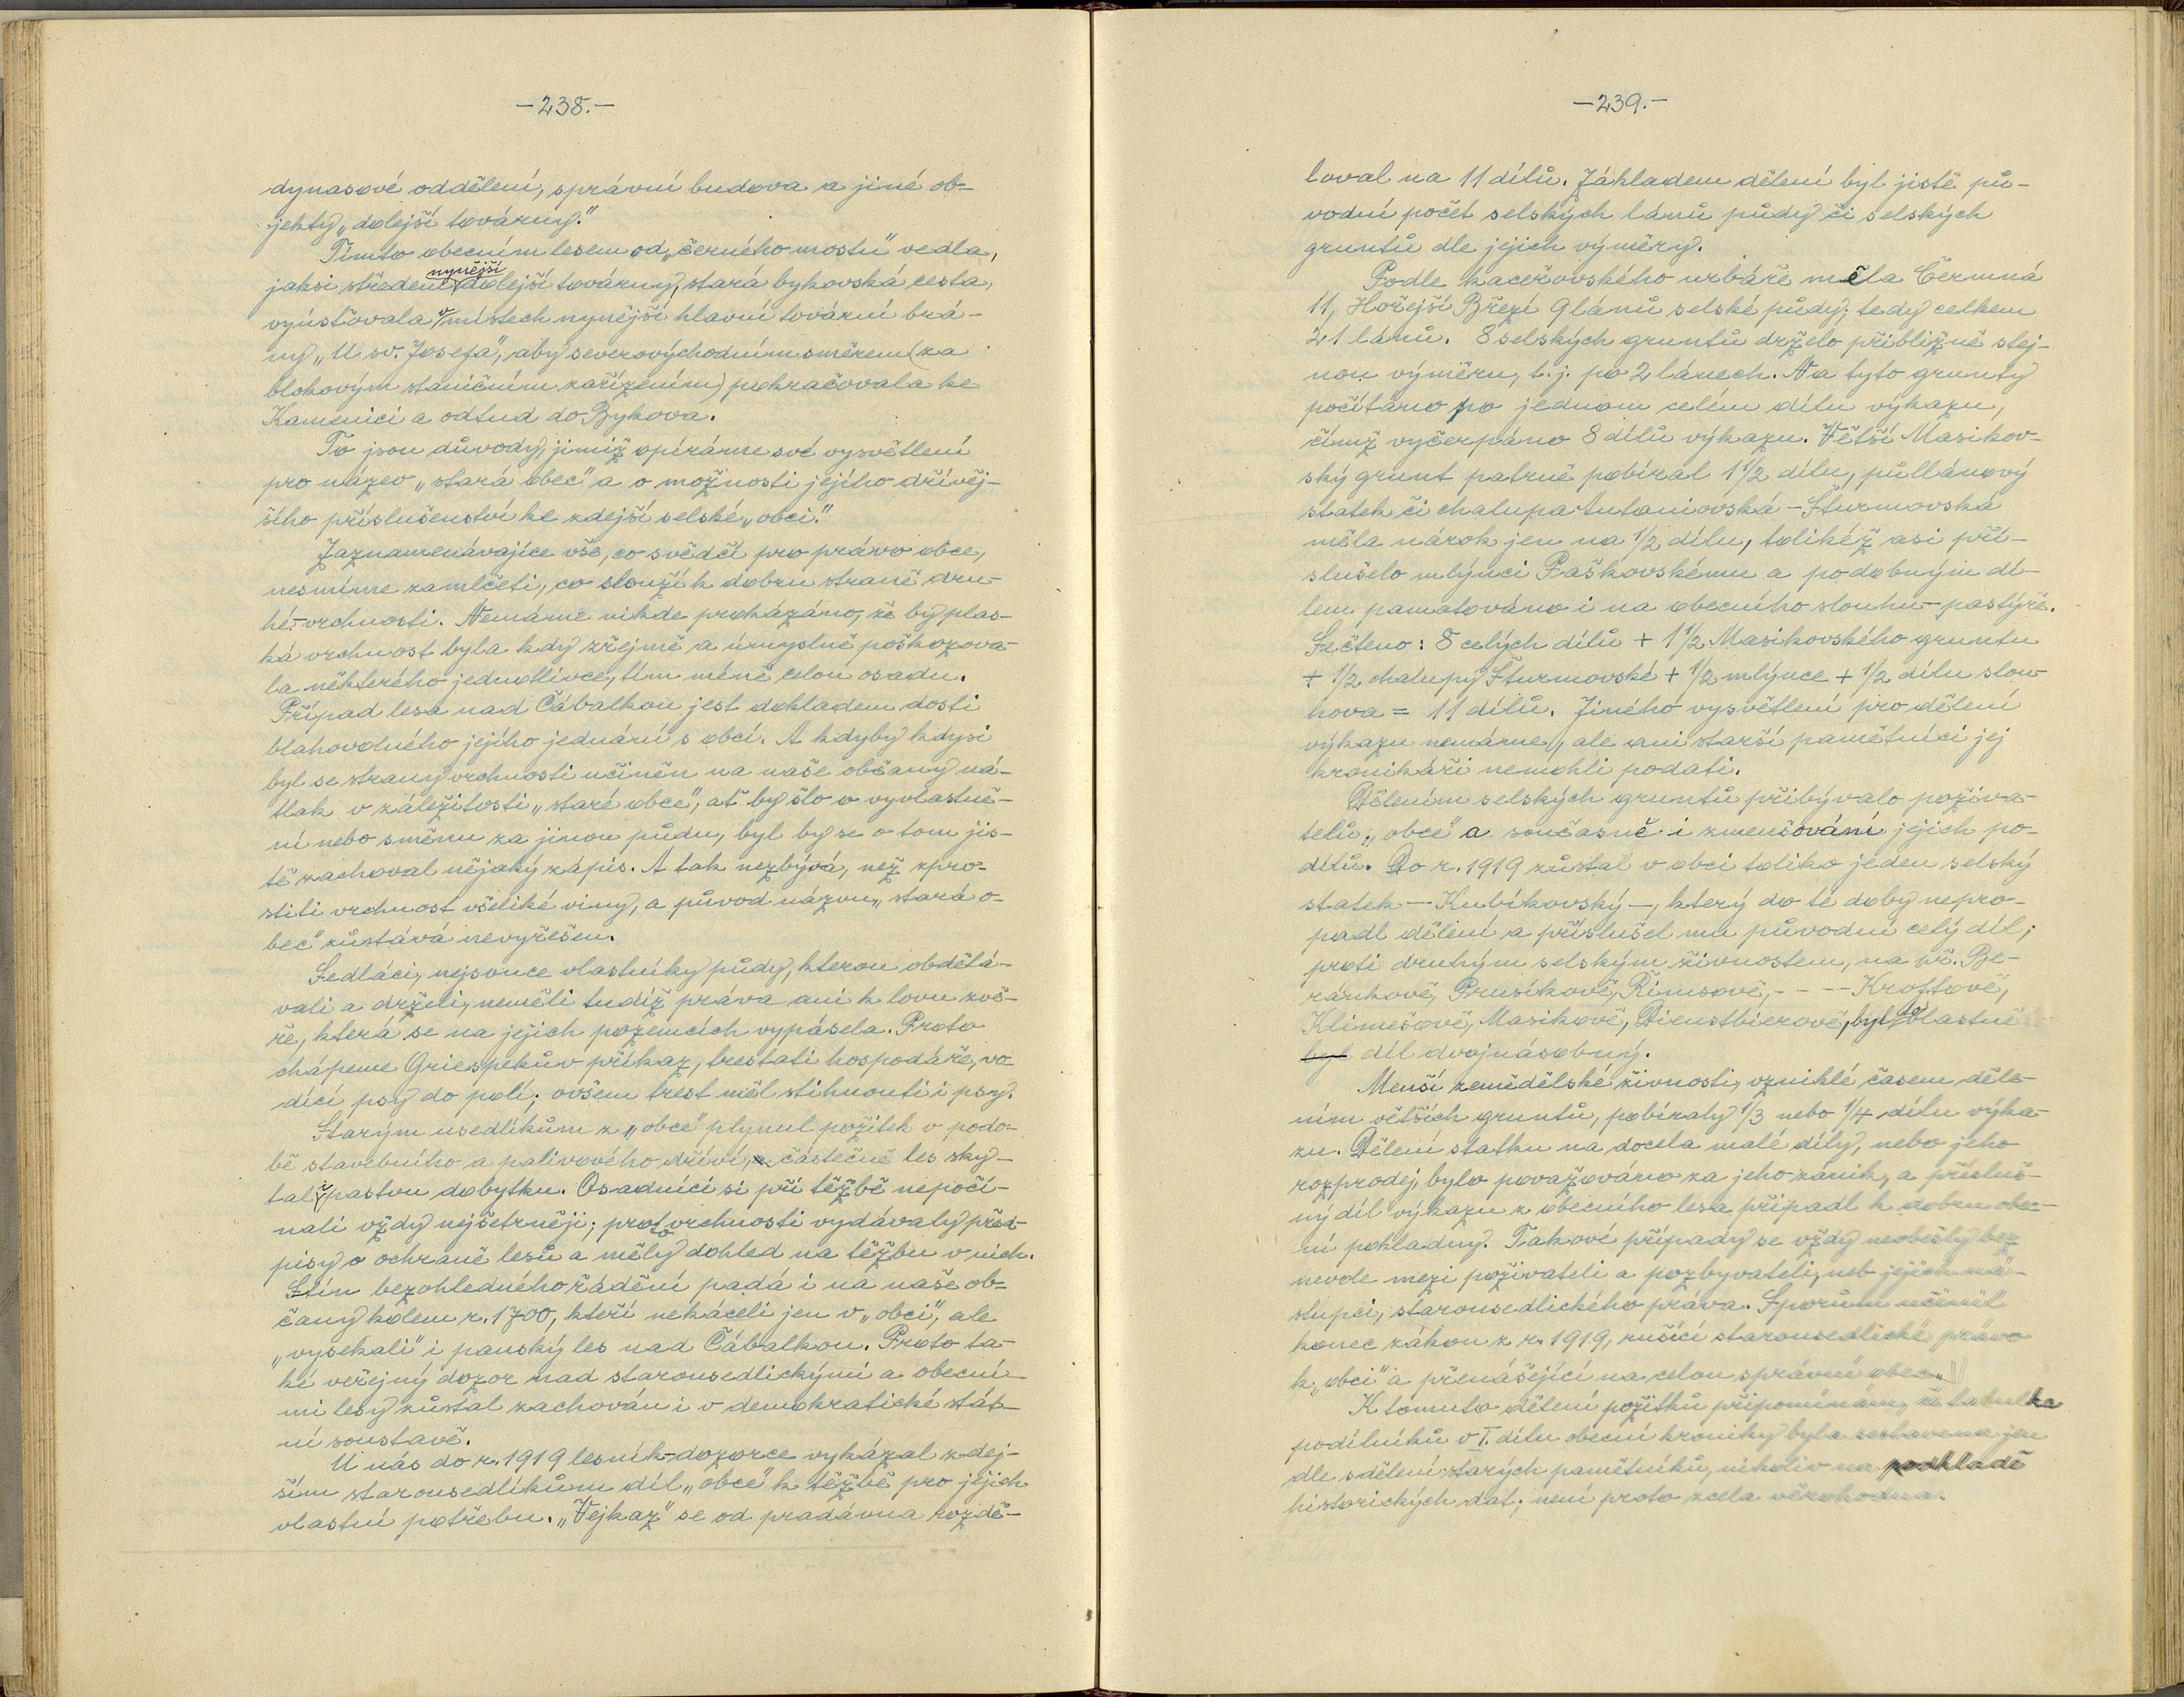 —238.—
dynasové oddělení, správní budova a jiné ob-
jekty „dolejší továrny."
Tímto obecním lesem od „černého mostu" vedla,
jaksi středem nynější dolejší továrny, stará bykovská cesta,
vyúsťovala v místech nynější hlavní tovární brá-
ny „U sv. Josefa", aby severovýchodním směrem (za
blokovým staničním zařízením) pokračovala ke
Kamenici a odtud do Bykova.
To jsou důvody, jimiž opíráme své vysvětlení
pro název „stará obec" a o možnosti jejího dřívěj-
šího příslušenství ke zdejší selské „obci."
Zaznamenávajíce vše, co svědčí pro právo obce,
nesmíme zamlčeti, co slouží k dobru straně dru-
hé - vrchnosti. Nemáme nikde prokázáno, že by plas-
ká vrchnost byla kdy zřejmě a úmyslně poškozova-
la některého jednotlivce, tím méně celou osadu.
Případ lesa nad Čábalkou jest dokladem dosti
blahovolného jejího jednání s obcí. A kdyby kdysi
byl se strany vrchnosti učiněn na naše občany ná-
tlak v záležitosti „staré obce", ať by šlo o vyvlastně-
ní nebo směnu za jinou půdu, byl by se o tom jis-
tě zachoval nějaký zápis. A tak nezbývá, než zpro-
stiti vrchnost všeliké viny, a původ názvu „stará o-
bec" zůstává nevyřešen.
Sedláci, nejsouce vlastníky půdy, kterou obdělá-
vali a drželi, neměli tudíž práva ani k lovu zvě-
ře, která se na jejich pozemcích vypásela. Proto
chápeme Griespekův příkaz, trestati hospodáře, vo-
dící psy do polí; ovšem trest měl stihnouti i psy.
Starým usedlíkům z „obce" plynul požitek v podo-
bě stavebního a palivového dříví, částečně les sky-
tal i pastvu dobytku. Osadníci si při těžbě nepočí-
nali vždy nejšetrněji; proto vrchnosti vydávaly před-
pisy o ochraně lesů a měly dohled na těžbu v nich.
Stín bezohledného řádění padá i na naše ob-
čany kolem r. 1700, kteří nekáceli jen v „obci", ale
„vysekali" i panský les nad Čábalkou. Proto ta-
ké veřejný dozor nad starousedlickými a obecní-
mi lesy zůstal zachován i v demokratické stát-
ní soustavě.
U nás do r. 1919 lesník-dozorce vykázal zdej-
ším starousedlíkům díl „obce" k těžbě pro jejich
vlastní potřebu. „Vejkaz" se od pradávna rozdě-
—239.—
loval na 11 dílů. Základem dělení byl jistě pů-
vodní počet selských lánů půdy či selských
gruntů dle jejich výměry.
Podle kaceřovského urbáře měla Čermná
11, Hořejší Březí 9 lánů selské půdy; tedy celkem
21 lánů. 8 selských gruntů drželo přibližně stej-
nou výměru, t. j. po 2 lánech. Na tyto grunty
počítáno po jednom celém dílu výkazu,
čímž vyčerpáno 8 dílů výkazu. Větší Masikov-
ský grunt patrně pobíral 1 1/2 dílu, půllánový
statek či chalupa Antoniovská - Šturmovská
měla nárok jen na 1/2 dílu, tolikéž asi pří-
slušelo mlýnci Paškovskému a podobným dí-
lem pamatováno i na obecního slouhu - pastýře.
Sečteno: 8 celých dílů + 1 1/2 Masikovského gruntu
+ 1/2 chalupy Šturmovské + 1/2 mlýnce + 1/2 dílu slou-
hova = 11 dílů. Jiného vysvětlení pro dělení
výkazu nemáme, ale ani starší pamětníci jej
kronikáři nemohli podati.
Dělením selských gruntů přibývalo požíva-
telů „obce" a současně i zmenšování jejich po-
dílů. Do r. 1919 zůstal v obci toliko jeden selský
statek — Kubíkovský —, který do té doby nepro-
padl dělení a příslušel mu původní celý díl;
proti druhým selským živnostem, na př. Be-
ránkově, Prusíkově, Římsově, - - - - Kroftově,
Klimešově, Masikově, Dienstbierově, byl to vlastně
byl díl dvojnásobný.
Menší zemědělské živnosti, vzniklé časem děle-
ním větších gruntů, pobíraly 1/3 nebo 1/4 dílu výka-
zu. Dělení statku na docela malé díly, nebo jeho
rozprodej, bylo považováno za jeho zánik, a přísluš-
ný díl výkazu z obecního lesa připadl k dobru obec-
ní pokladny. Takové případy se vždy neobešly bez
nevole mezi poživateli a pozbyvateli, neb jejich ná-
stupci, starousedlického práva. Sporům učinil
konec zákon z r. 1919, rušící starousedlické právo
k „obci" a přenášející na celou správní obec.
K tomuto dělení požitků připomínám, že tabulka
podílníků v I. dílu obecní kroniky byla sestavena jen
dle sdělení starých pamětníků, nikoliv na podkladě
historických dat; není proto zcela věrohodna.